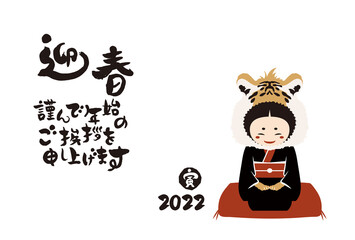 迎春
謹んで年始の
ご挨拶を
申し上げます
寅
2022